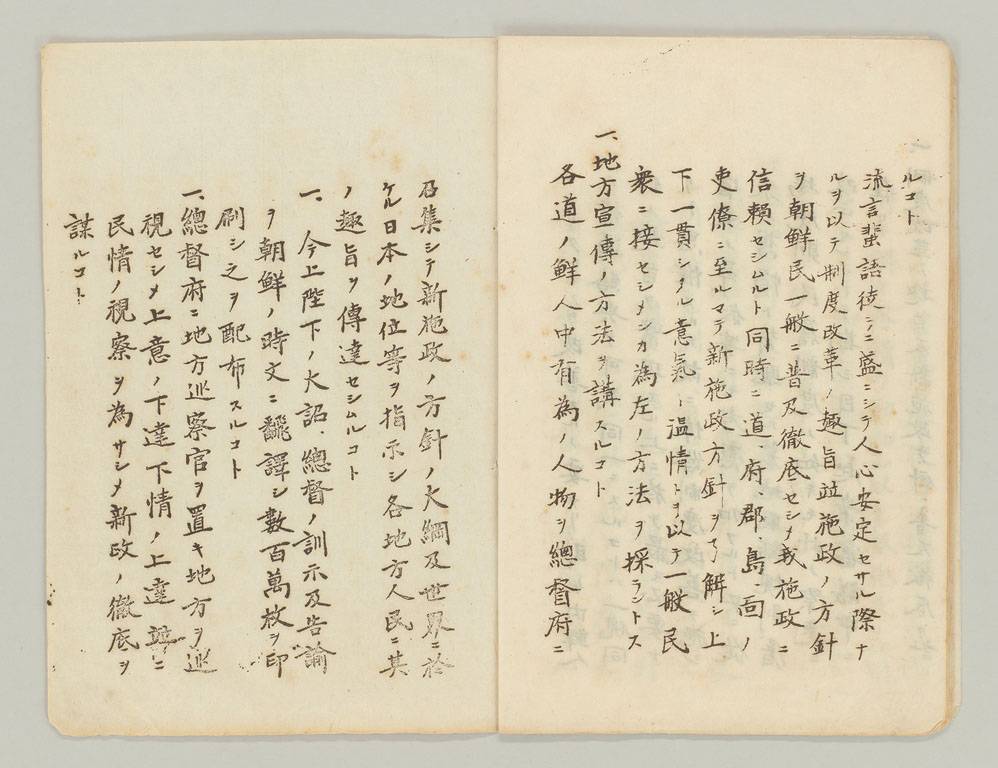 ルコト
流言蜚語徒ラニ盛ニシテ人心安定セサル際ナ
ルヲ以テ制度改革ノ趣旨並施政ノ方針
ヲ朝鮮民一般ニ普及徹底セシメ我施政ニ
信賴セシムルト同時ニ道、府、郡、島、面ノ
吏僚ニ至ルマテ新施政方針ヲ了解シ上
下一貫シタル意氣ト温情トヲ以テ一般民
衆ニ接セシメンカ為左ノ方法ヲ採ラントス
一、地方宣傳ノ方法ヲ講スルコト
各道ノ鮮人中有為ノ人物ヲ總督府ニ
召集シテ新施政ノ方針ノ大綱及世界ニ於
ケル日本ノ地位等ヲ指示シ各地方人民ニ其
ノ趣旨ヲ傳達セシムルコト
一、今上陛下ノ大詔、總督ノ訓示及告諭
ヲ朝鮮ノ時文ニ飜譯シ數百萬枚ヲ印
刷シ之ヲ配布スルコト
一、總督府ニ地方巡察官ヲ置キ地方ヲ巡
視セシメ上意ノ下達下情ノ上達並ニ
民情ノ視察ヲ為サシメ新政ノ徹底ヲ
謀ルコト